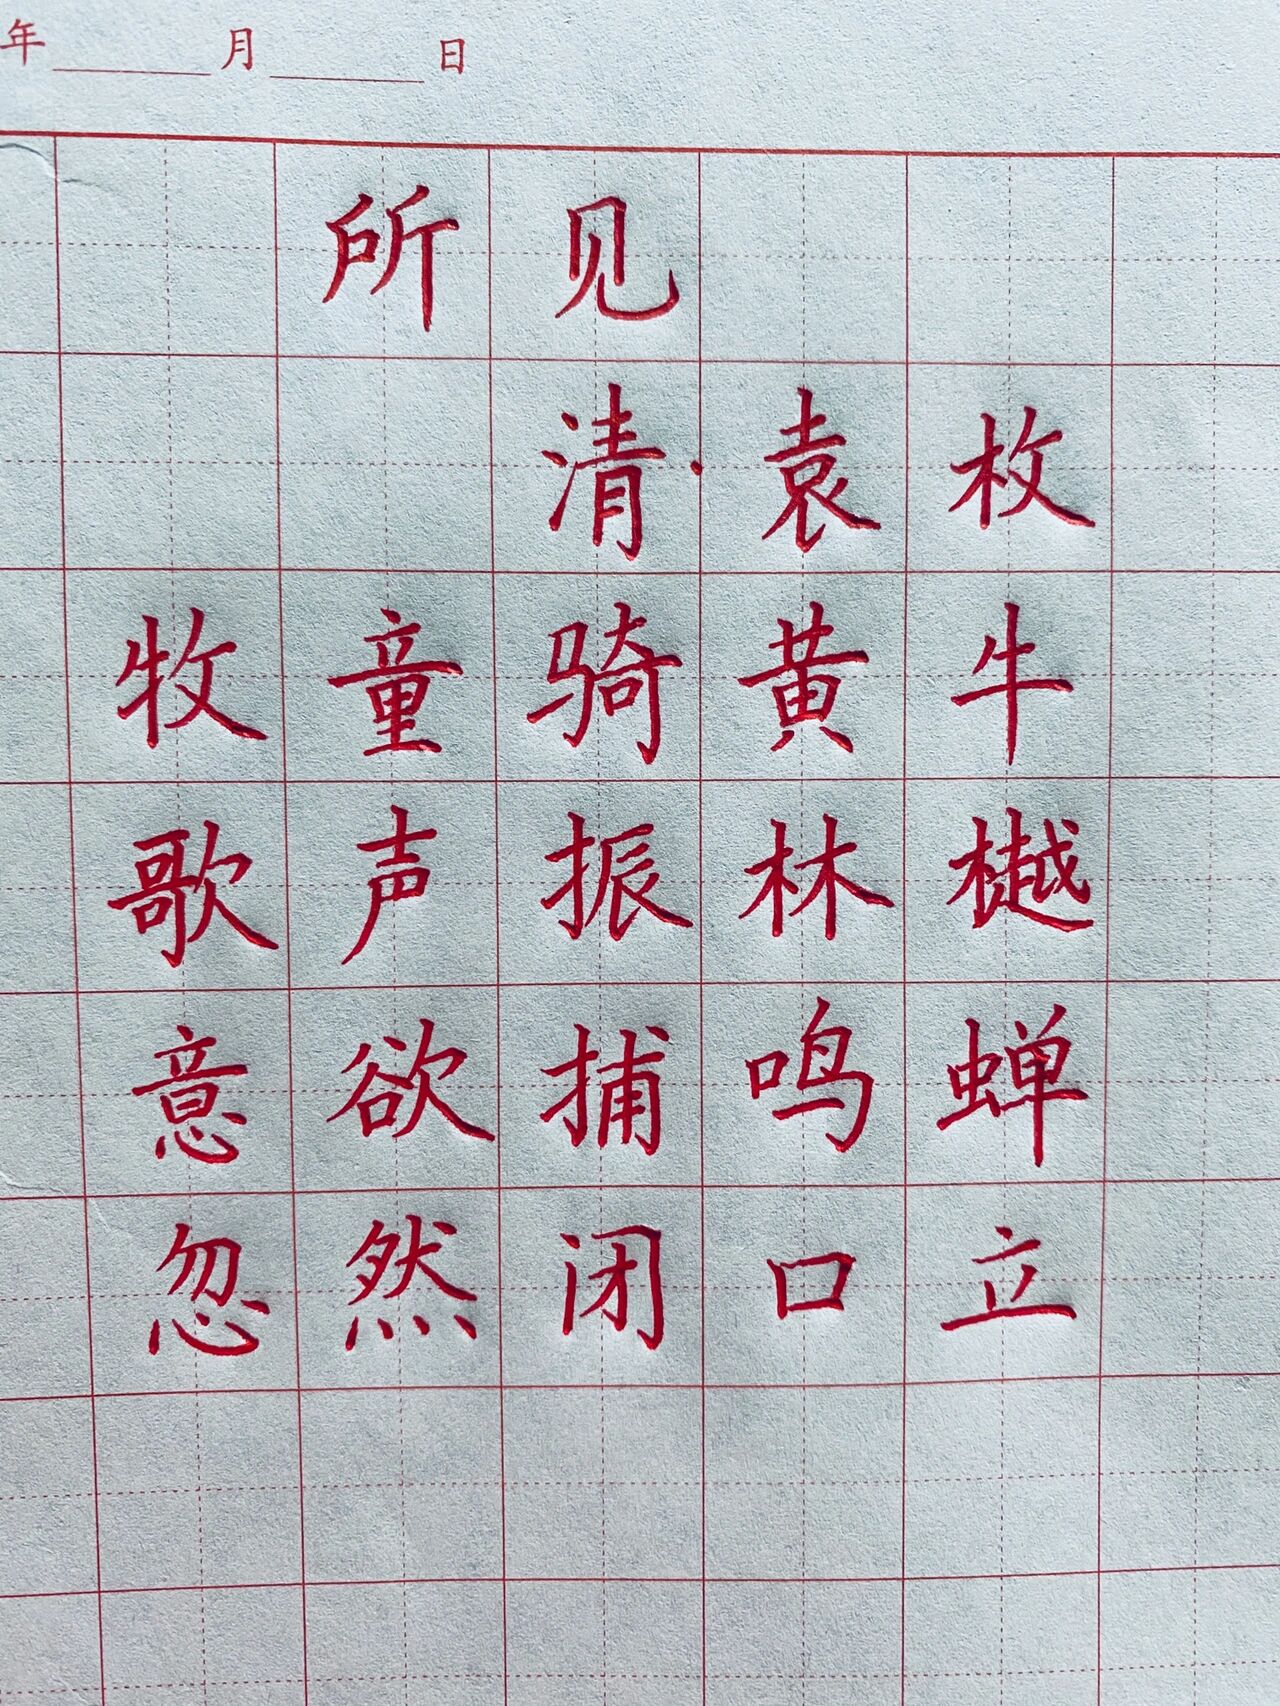 年 月 日
所见
清·袁枚
牧童骑黄牛
歌声振林樾
意欲捕鸣蝉
忽然闭口立